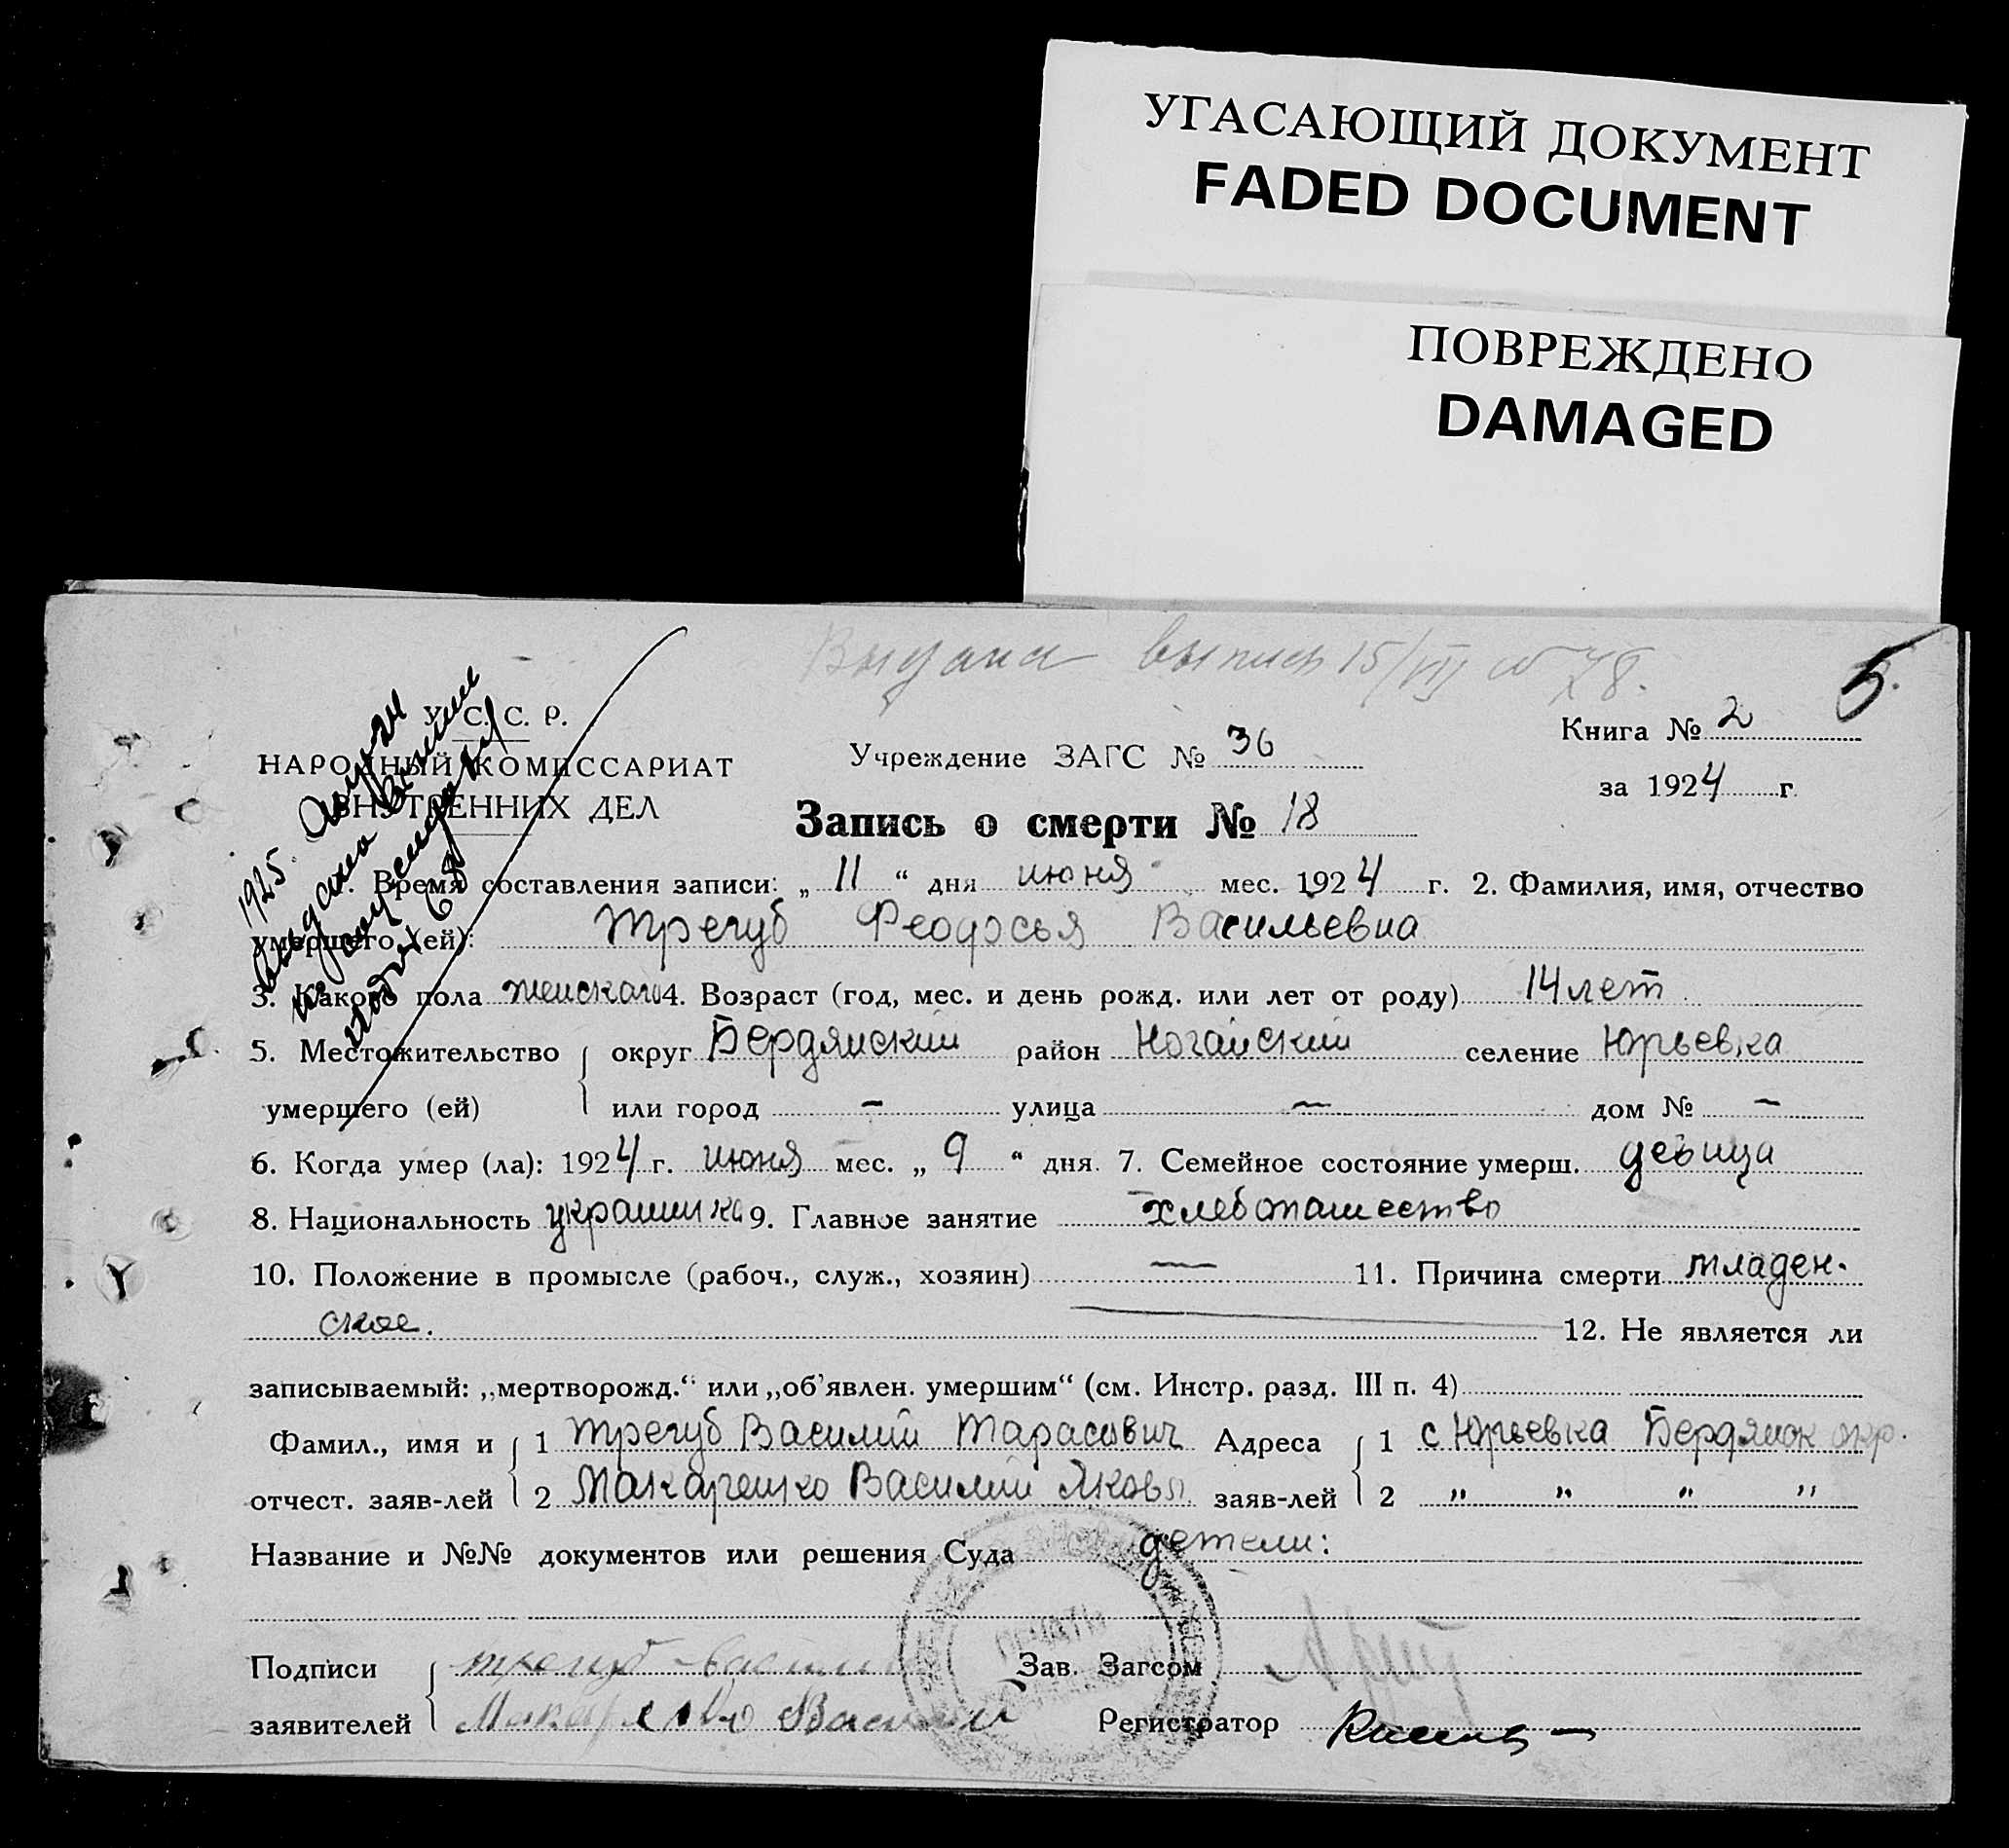 УГАСАЮЩИЙ ДОКУМЕНТ
FADED DOCUMENT
ПОВРЕЖДЕНО
DAMAGED
Выдана выпись 15/VII № 78.
5.
У. С. С. Р.
НАРОДНЫЙ КОМИССАРИАТ
ВНУТРЕННИХ ДЕЛ
Учреждение ЗАГС № 36
Книга № 2
за 1924 г.
Запись о смерти № 18
1925
1. Время составления записи: „ 11 “ дня июня мес. 1924 г. 2. Фамилия, имя, отчество
умершего (ей): Трегуб Феодосья Васильевна
3. Какого пола женскаго 4. Возраст (год, мес. и день рожд. или лет от роду) 14 лет
5. Местожительство округ Бердянский район Ногайский селение Юрьевка
умершего (ей) или город — улица — дом № —
6. Когда умер (ла): 1924 г. июня мес. „ 9 “ дня. 7. Семейное состояние умерш. девица
8. Национальность украинка 9. Главное занятие хлебопашество
10. Положение в промысле (рабоч., служ., хозяин) — 11. Причина смерти младен-
ское. 12. Не является ли
записываемый: „мертворожд.“ или „об'явлен. умершим“ (см. Инстр. разд. III п. 4)
Фамил., имя и 1 Трегуб Василий Тарасович Адреса 1 с Юрьевка Бердянск окр.
отчест. заяв-лей 2 Макаренко Василий Яковл. заяв-лей 2 „ „ „ „
Название и №№ документов или решения Суда
Подписи трегуб Васили Зав. Загсом
заявителей Макаренко Василий Регистратор